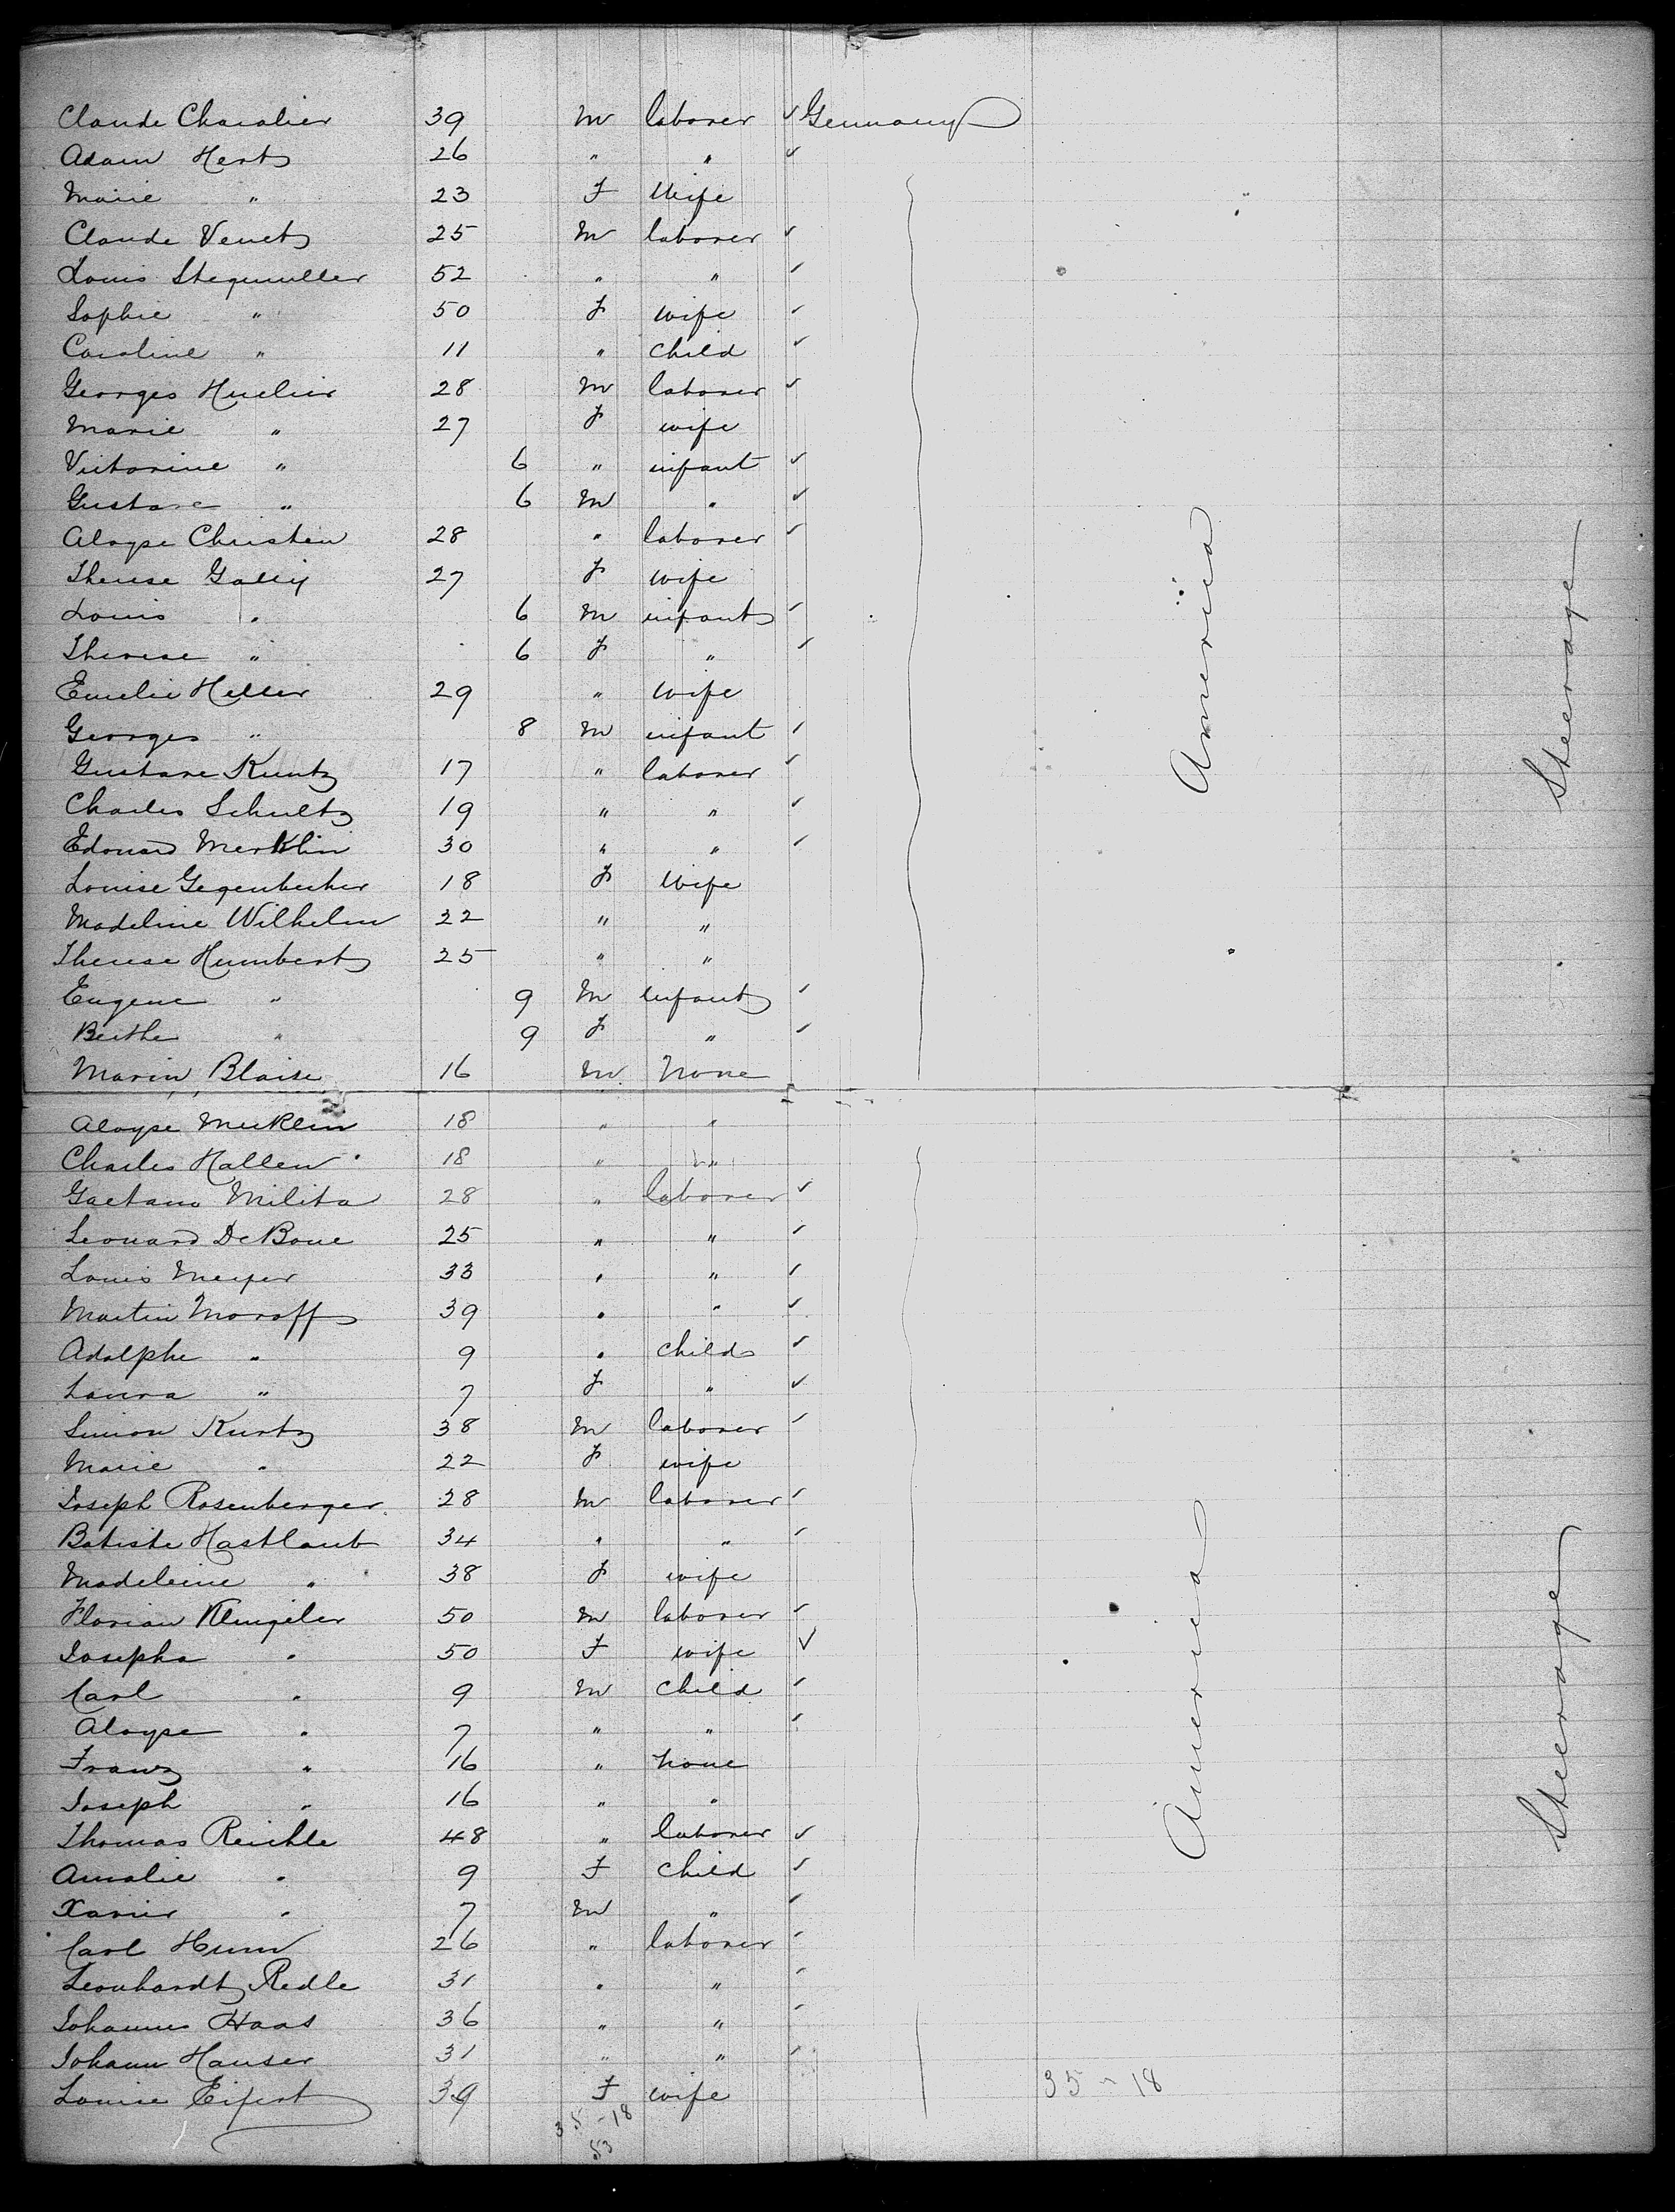 Claude Chavalier 39 m laborer ✓ Germany
Adam Hertz 26 " " ✓
Marie " 23 F Wife
Claude Venetz 25 m laborer ✓
Louis Stegmuller 52 " " ✓
Sophie " 50 F wife ✓
Caroline " 11 " child ✓
Georges Huelier 28 m laborer ✓
Marie " 27 F wife
Victorine " 6 " infant ✓
Gustave " 6 m " ✓
Aloyse Christen 28 " laborer ✓
Therese Gally 27 F wife
Louis " 6 m infant ✓
Therese " 6 F " ✓
Emelie Heller 29 " wife
Georges " 8 m infant ✓
Gustave Kuntz 17 " laborer ✓
Charles Schultz 19 " " ✓
Edouard Merklin 30 " " ✓
Louise Gegenbecher 18 F Wife
Madeline Wilhelm 22 " "
Therese Humbert 25 " "
Eugene " 9 m infant ✓
Berthe " 9 F " ✓
Marin Blaise 16 m None
Aloyse Merklen 18 " "
Charles Hallew 18 " "
Gaetano Milita 28 " laborer ✓
Leonard De Bone 25 " " ✓
Louis Meyer 33 " " ✓
Martin Moroff 39 " " ✓
Adolphe " 9 " child ✓
Laura " 7 F " ✓
Simon Kurtz 38 m laborer ✓
Marie " 22 F wife
Joseph Rosenberger 28 m laborer ✓
Batiste Hastlaub 34 " " ✓
Madeleine " 38 F wife
Florian Klingeler 50 m laborer ✓
Josepha " 50 F wife ✓
Carl " 9 m child ✓
Aloyse " 7 " " ✓
Franz " 16 " none
Joseph " 16 " "
Thomas Reichle 48 " laborer ✓
Amalie " 9 F child ✓
Xavier " 7 m " ✓
Carl Humm 26 " laborer ✓
Leonhardt Redle 31 " " ✓
Johannes Haas 36 " " ✓
Johann Hauser 31 " " ✓
Louise Eifert 39 F wife
35-18
53
35-18
America
America
Steerage
Steerage